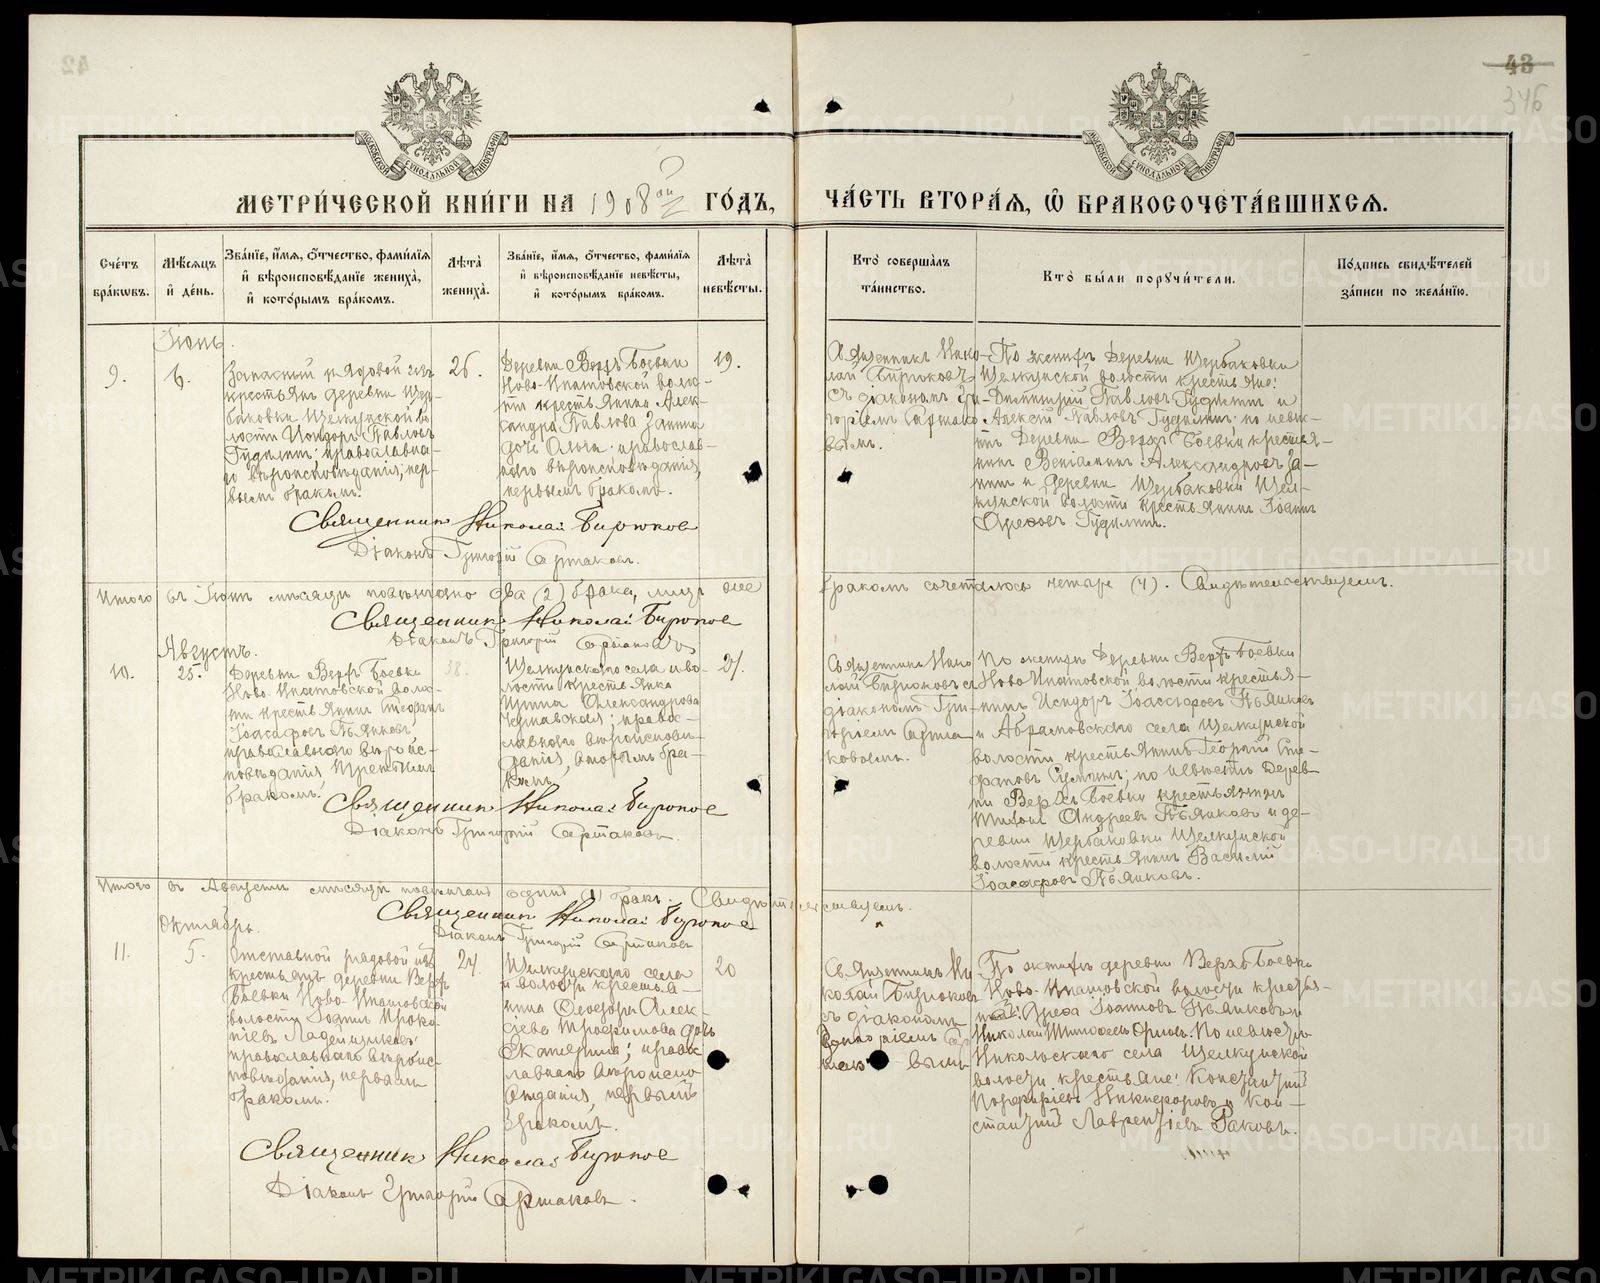 42
43
346
МЕТРИ́ЧЕСКОЙ КНИ́ГИ НА 1908ой ГО́ДЪ,
ЧА́СТЬ ВТОРА́Я, Ѡ БРАКОСОЧЕТА́ВШИХСЯ.
Сче́тъ бра́кѡвъ.
Мѣ́сяцъ и де́нь.
Зва́нїе, и́мя, ѻ́тчество, фами́лїя и вѣроисповѣ́данїе жениха̀, и кото́рымъ бра́комъ.
Лѣ́та жениха̀.
Зва́нїе, и́мя, ѻ́тчество, фами́лїя и вѣроисповѣ́данїе невѣ́сты, и кото́рымъ бра́комъ.
Лѣ́та невѣ́сты.
Кто̀ соверша́лъ та́инство.
Кто̀ бы́ли порꙋчи́тели.
По́дпись свидѣ́телей за́писи по жела́нїю.
Іюнь.
9.
6.
Запасный рядовой изъ
крестьянъ деревни Щер-
баковки Щелкунской во
лости Исидоръ Павловъ
Гудилинъ; православна-
го вѣроисповѣданія, пер-
вымъ бракомъ.
26.
Деревни Верхъ Боевки
Ново-Ипатовской воло-
сти крестьянина Алек-
сандра Павлова Зянина
дочь православ-
наго вѣроисповѣданія,
первымъ бракомъ.
19.
Священникъ Нико-
лай Бирюковъ
съ діакономъ Гри-
горіемъ Сартако
вымъ.
По женихѣ Деревни Щербаковки
Щелкунской волости крестьяне:
Димитрій Павловъ Гудилинъ и
Алексѣй Павловъ Гудилинъ; по невѣс-
тѣ Деревни Верхъ Боевки крестья-
нинъ Веніаминъ Александровъ Зя-
нинъ и деревни Щербаковки Щел-
кунской волости крестьянинъ Іоаннъ
Гудилинъ.
Священникъ Николай Бирюковъ
Діаконъ Григорій Сартаковъ.
Итого въ Іюнѣ мѣсяцѣ повѣнчано два (2) брака, лицъ
бракомъ сочеталось четыре (4). Свидѣтельствуемъ.
Священникъ Николай Бирюковъ
Діаконъ Григорій Сартаковъ
Августъ.
10.
25.
Деревни Верхъ Боевки
Ново-Ипатовской воло-
сти крестьянинъ
Іоасафовъ Пьянковъ,
православнаго вѣроис-
повѣданія третьимъ
бракомъ.
38.
Щелкунскаго села и во-
лости крестьянка
Ирина Александрова
правос-
лавнаго вѣроисповѣ-
данія, вторымъ бра-
комъ.
Священникъ Нико
лай Бирюковъ съ
діакономъ Гри-
горіемъ Сарта
ковымъ.
По женихѣ Деревни Верхъ Боевки
Ново Ипатовской волости крестья-
нинъ Исидоръ Іоасафовъ Пьянковъ
и Абрамовскаго села Щелкунской
волости крестьянинъ Георгій Сте-
фановъ по невѣстѣ Дерев
ни Верхъ Боевки крестьянинъ
Андреевъ Пьянковъ и де-
ревни Щербаковки Щелкунской
волости крестьянинъ Василій
Іоасафовъ Пьянковъ.
Священникъ Николай Бирюковъ
Діаконъ Григорій Сартаковъ.
Итого въ Августѣ мѣсяцѣ повѣнчанъ одинъ (1) бракъ. Свидѣтельствуемъ.
Священникъ Николай Бирюковъ
Діаконъ Григорій Сартаковъ
Октябрь.
11.
5.
Отставной рядовой изъ
крестьянъ деревни Верхъ
Боевки Ново-Ипатовской
волости Іоаннъ Проко-
піевъ
православнаго вѣроис-
повѣданія, первымъ
бракомъ.
24.
Щелкунскаго села
и волости крестья-
нина Ѳеодора Алек-
сѣева Трофимова дочь
Екатерина; правос
лавнаго вѣроиспо
вѣданія, первымъ
бракомъ.
20
Священникъ Ни
колай Бирюковъ
съ діакономъ
Григоріемъ Сар
тако вымъ
По женихѣ деревни Верхъ-Боевки
Ново-Ипатовской волости крестья-
не: Іоанновъ Пьянковъ и
Николай Тимоѳеевъ Орловъ. По невѣстѣ
Никольскаго села Щелкунской
волости крестьяне: Константинъ
Порфиріевъ Никифоровъ и Кон-
стантинъ Лаврентіевъ Раковъ.
Священникъ Николай Бирюковъ
Діаконъ Григорій Сартаковъ.
METRIKI.GASO-URAL.RU